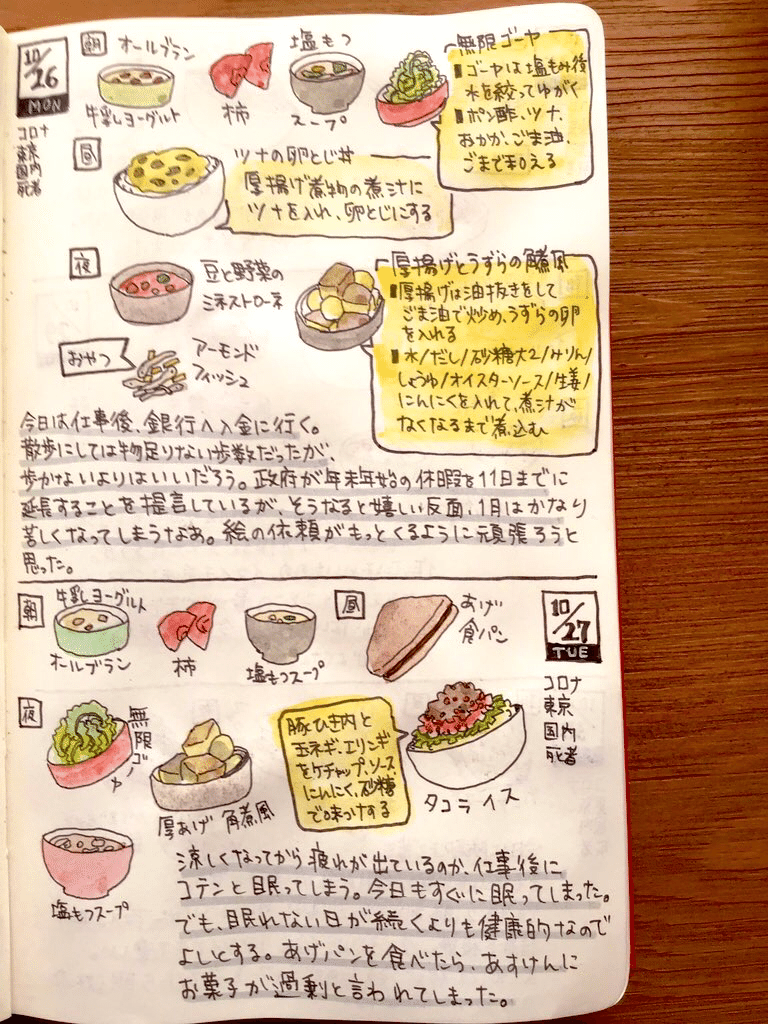 10/26
MON
コロナ
東京
国内
死者
朝
オールブラン
牛乳しヨーグルト
柿
塩もつ
スープ
無限ゴーヤ
■ゴーヤは塩もみ後
水を絞ってゆがく
■ポン酢、ツナ、
おかか、ごま油、
ごまで和える
昼
ツナの卵とじ丼
厚揚げ煮物の煮汁に
ツナを入れ、卵とじにする
夜
豆と野菜の
ミネストローネ
おやつ
アーモンド
フィッシュ
厚揚げとうずらの角煮風
■厚揚げは油抜きをして
ごま油で炒め、うずらの卵
を入れる
■水/だし/砂糖大2/みりん/
しょうゆ/オイスターソース/生姜/
にんにくを入れて、煮汁が
なくなるまで煮込む
今日は仕事後、銀行へ入金に行く。
散歩にしては物足りない歩数だったが、
歩かないよりはいいだろう。政府が年末年始の休暇を11日までに
延長することを提言しているが、そうなると嬉しい反面、1月はかなり
苦しくなってしまうなあ。絵の依頼がもっとくるように頑張ろうと
思った。
10/27
TUE
コロナ
東京
国内
死者
朝
牛乳しヨーグルト
オールブラン
柿
塩もつスープ
昼
あげ
食パン
夜
無限ゴーヤ
厚あげ角煮風
豚ひき肉と
玉ネギ、エリンギ
をケチャップ、ソース、
にんにく、砂糖
で味つけする
タコライス
塩もつスープ
涼しくなってから疲れが出ているのか、仕事後に
コテンと眠ってしまう。今日もすぐに眠ってしまった。
でも、眠れない日が続くよりも健康的なので
よしとする。あげパンを食べたら、あすけんに
お菓子が過剰と言われてしまった。